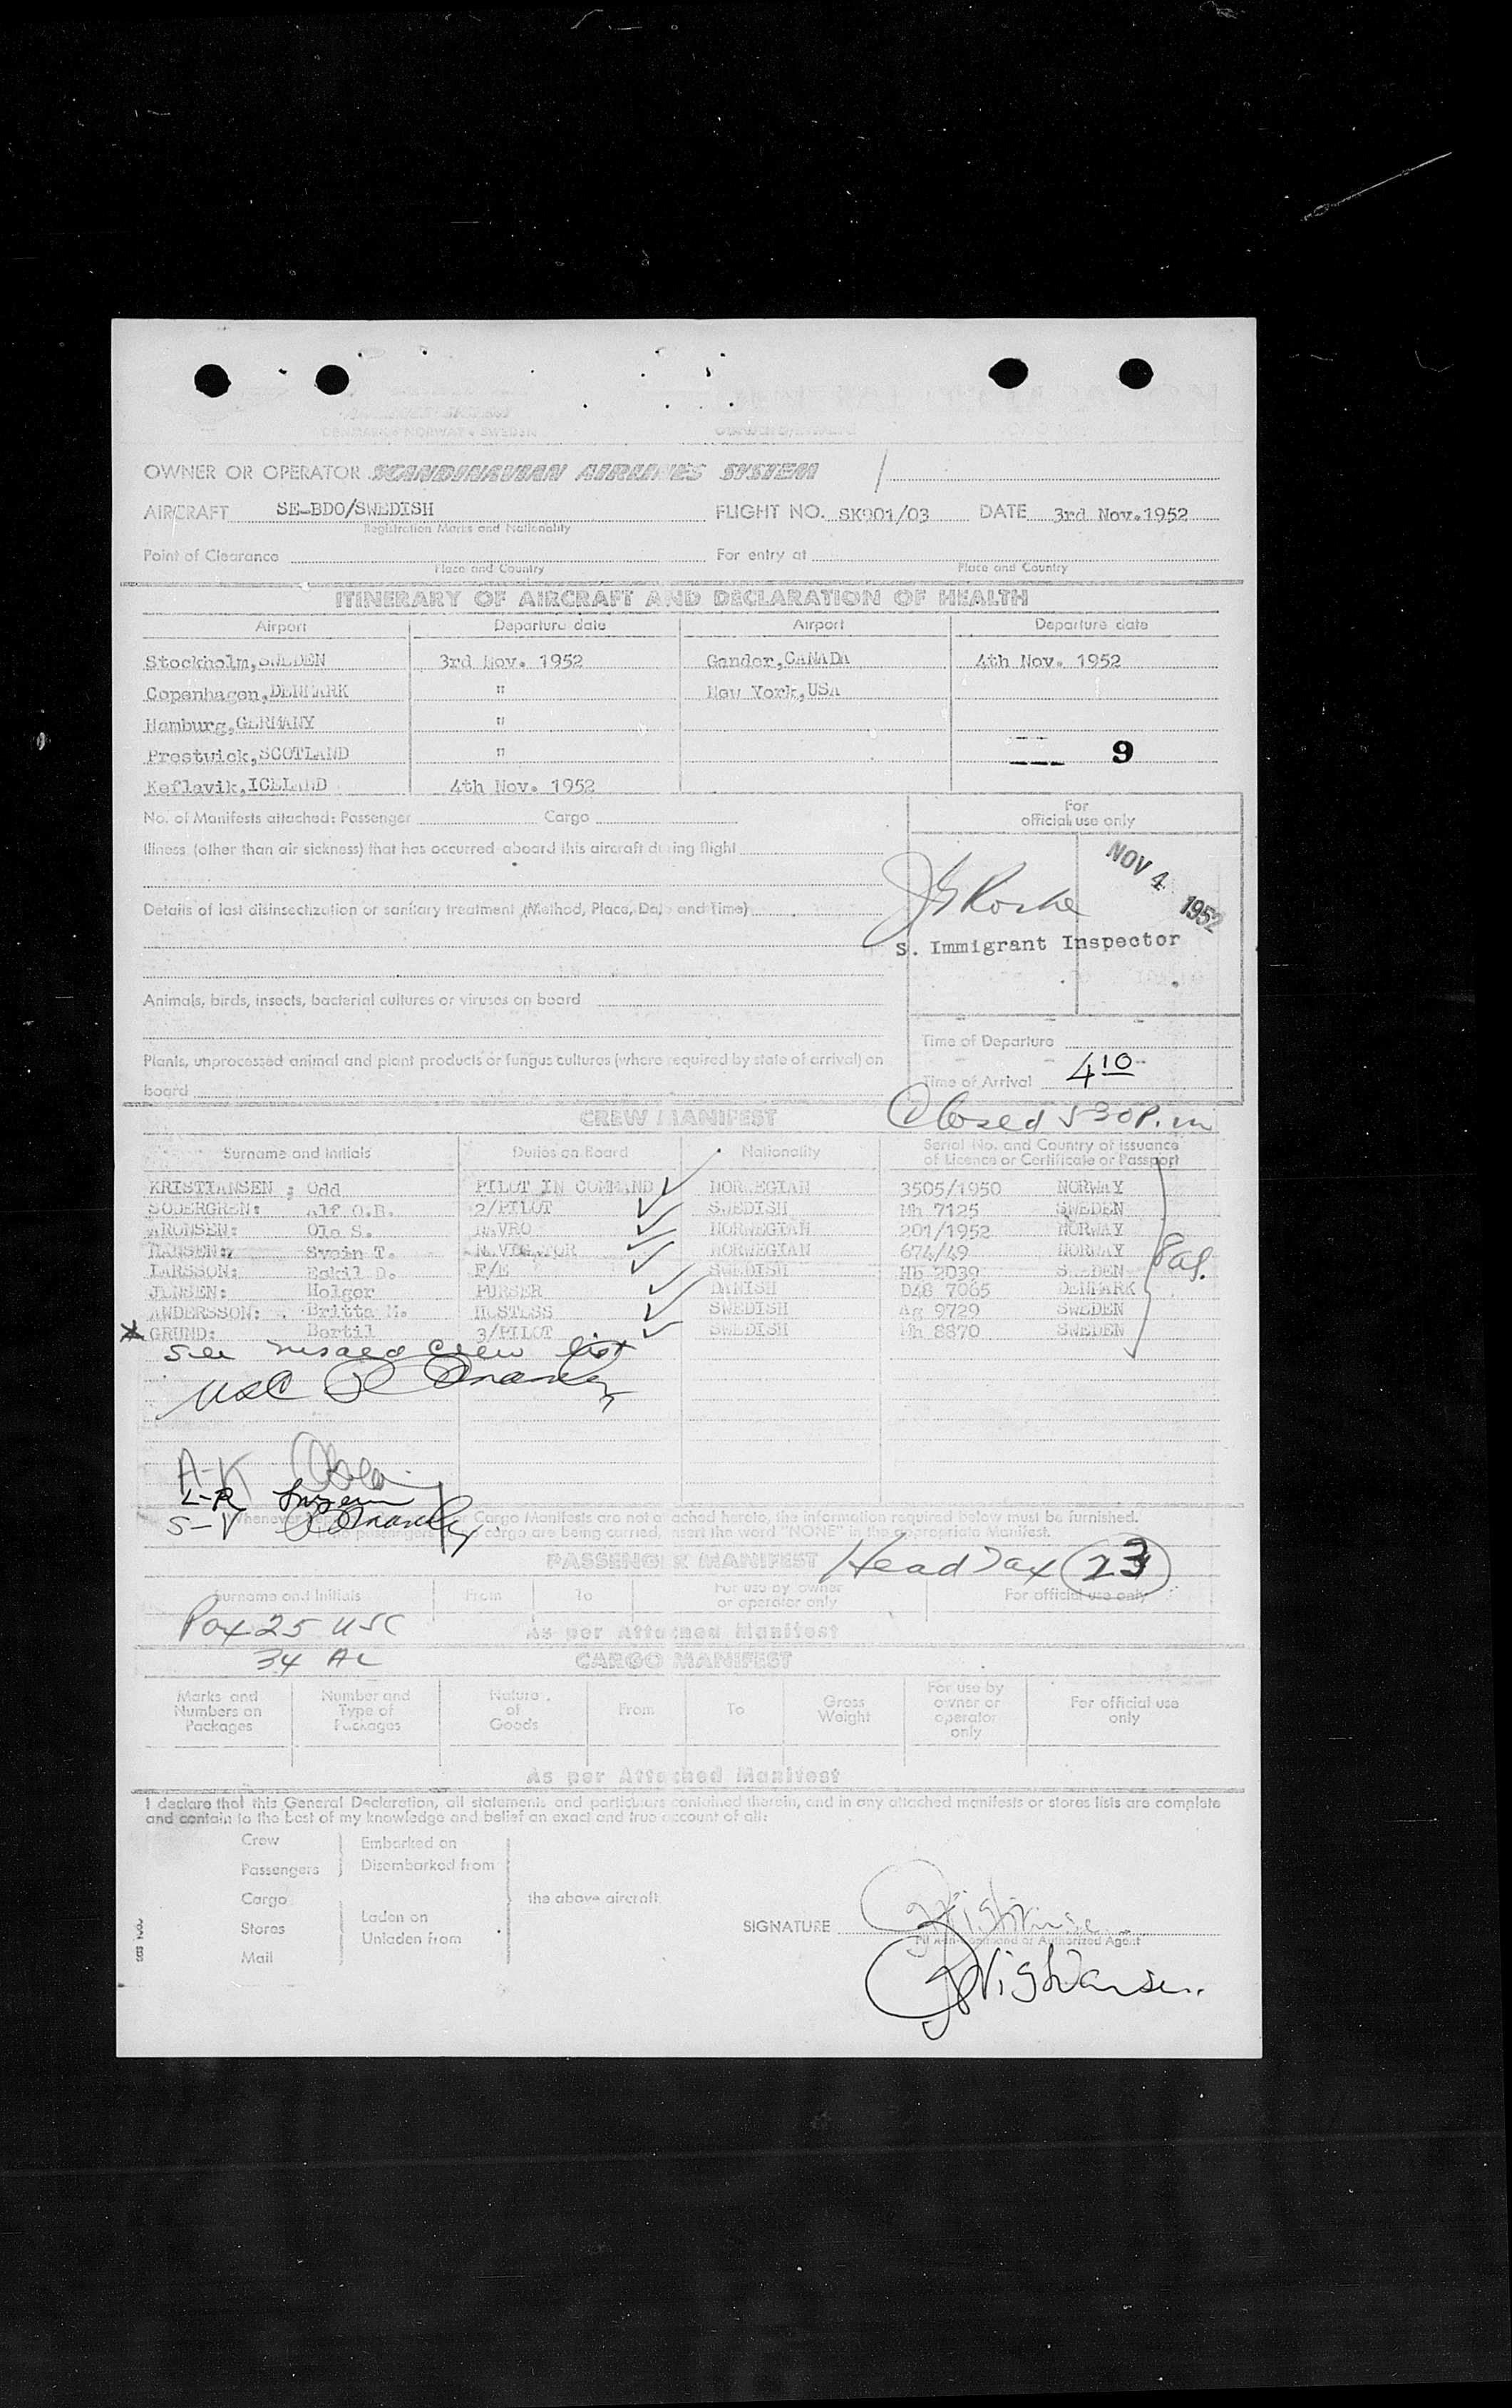 DENMARK • NORWAY • SWEDEN
OWNER OR OPERATOR SCANDINAVIAN AIRLINES SYSTEM
AIRCRAFT SE-BDO/SWEDISH FLIGHT NO. SK901/03 DATE 3rd Nov.1952
Registration Marks and Nationality
Point of Clearance For entry at
Place and Country Place and Country
ITINERARY OF AIRCRAFT AND DECLARATION OF HEALTH
Airport Departure date Airport Departure date
Stockholm,SWEDEN 3rd Nov. 1952 Gander,CANADA 4th Nov. 1952
Copenhagen,DENMARK " New York,USA
Hamburg,GERMANY "
Prestwick,SCOTLAND " 9
Keflavik,ICELAND 4th Nov. 1952
No. of Manifests attached: Passenger Cargo
For
official use only
Illness (other than air sickness) that has occurred aboard this aircraft during flight
NOV 4 1952
Details of last disinsectization or sanitary treatment (Method, Place, Date and Time)
S. Immigrant Inspector
Animals, birds, insects, bacterial cultures or viruses on board
Time of Departure
Plants, unprocessed animal and plant products or fungus cultures (where required by state of arrival) on
board
Time of Arrival 4 10
Closed 5 30 P.m
CREW MANIFEST
Surname and Initials Duties on Board Nationality Serial No. and Country of issuance
of Licence or Certificate or Passport
KRISTIANSEN ; Odd PILOT IN COMMAND NORWEGIAN 3505/1950 NORWAY
SODERGREN: Alf O.R. 2/PILOT SWEDISH Mh 7125 SWEDEN
ARONSEN: Ole S. NAVRO NORWEGIAN 201/1952 NORWAY
HANSEN: Svein T. NAVIGATOR NORWEGIAN 674/49 NORWAY
LARSSON: Eskil D. F/E SWEDISH Hb 2039 SWEDEN
JENSEN: Holger PURSER DANISH D48 7065 DENMARK
ANDERSSON: Britta M. HOSTESS SWEDISH Ag 9729 SWEDEN
GRUND: Bertil 3/PILOT SWEDISH Mh 8870 SWEDEN
See crew list
USC
A-K
L-R
S-V
Whenever Cargo Manifests are not attached hereto, the information required below must be furnished.
passengers cargo are being carried, insert the word "NONE" in the appropriate Manifest.
PASSENGER MANIFEST Head Tax 23
Surname and Initials From To For use by owner
or operator only For official use only
Pax 25 USC
As per Attached Manifest
34 AL
CARGO MANIFEST
Marks and
Numbers on
Packages Number and
Type of
Packages Nature
of
Goods From To Gross
Weight For use by
owner or
operator
only For official use
only
As per Attached Manifest
I declare that this General Declaration, all statements and particulars contained therein, and in any attached manifests or stores lists are complete
and contain to the best of my knowledge and belief an exact and true account of all:
Crew Embarked on
Passengers Disembarked from
Cargo the above aircraft
Laden on
Stores SIGNATURE
Unladen from
Pilot-in-Command or Authorized Agent
Mail
Kristiansen